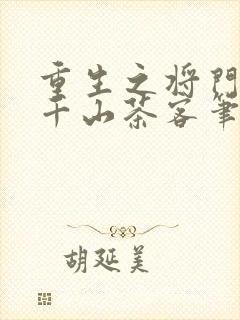 重生之将门
千山茶客笔
胡延美